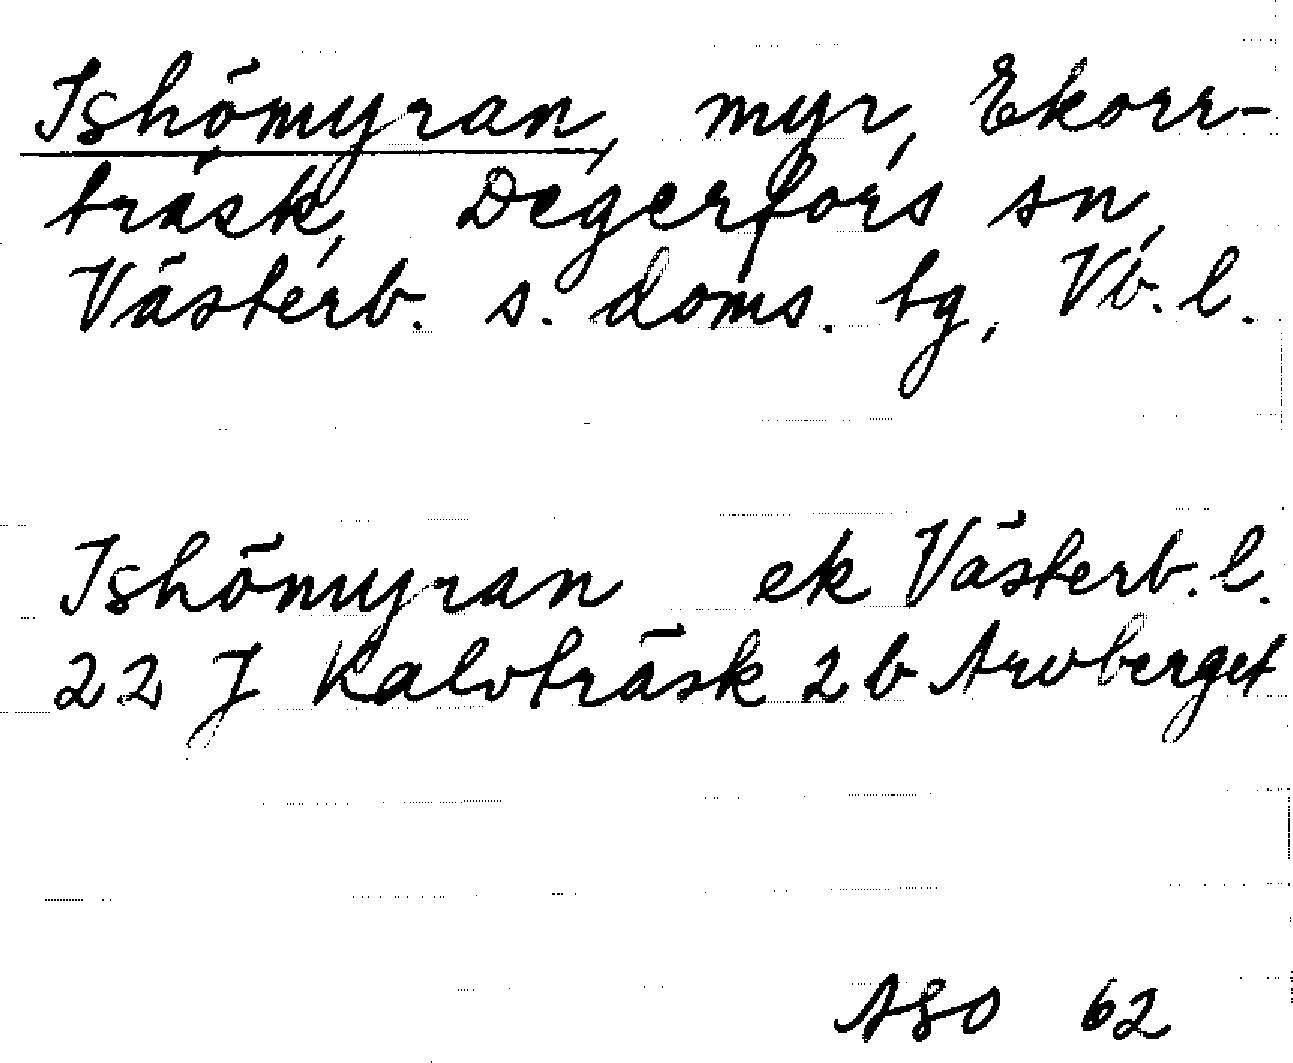 Ishömyran, myr, Ekorr-
träsk, Degerfors sn,
Västerb. s. doms. tg, Vb. l.
Ishömyran ek Västerb. l.
22 J Kalvträsk 2 b Arvberget
ASO 62